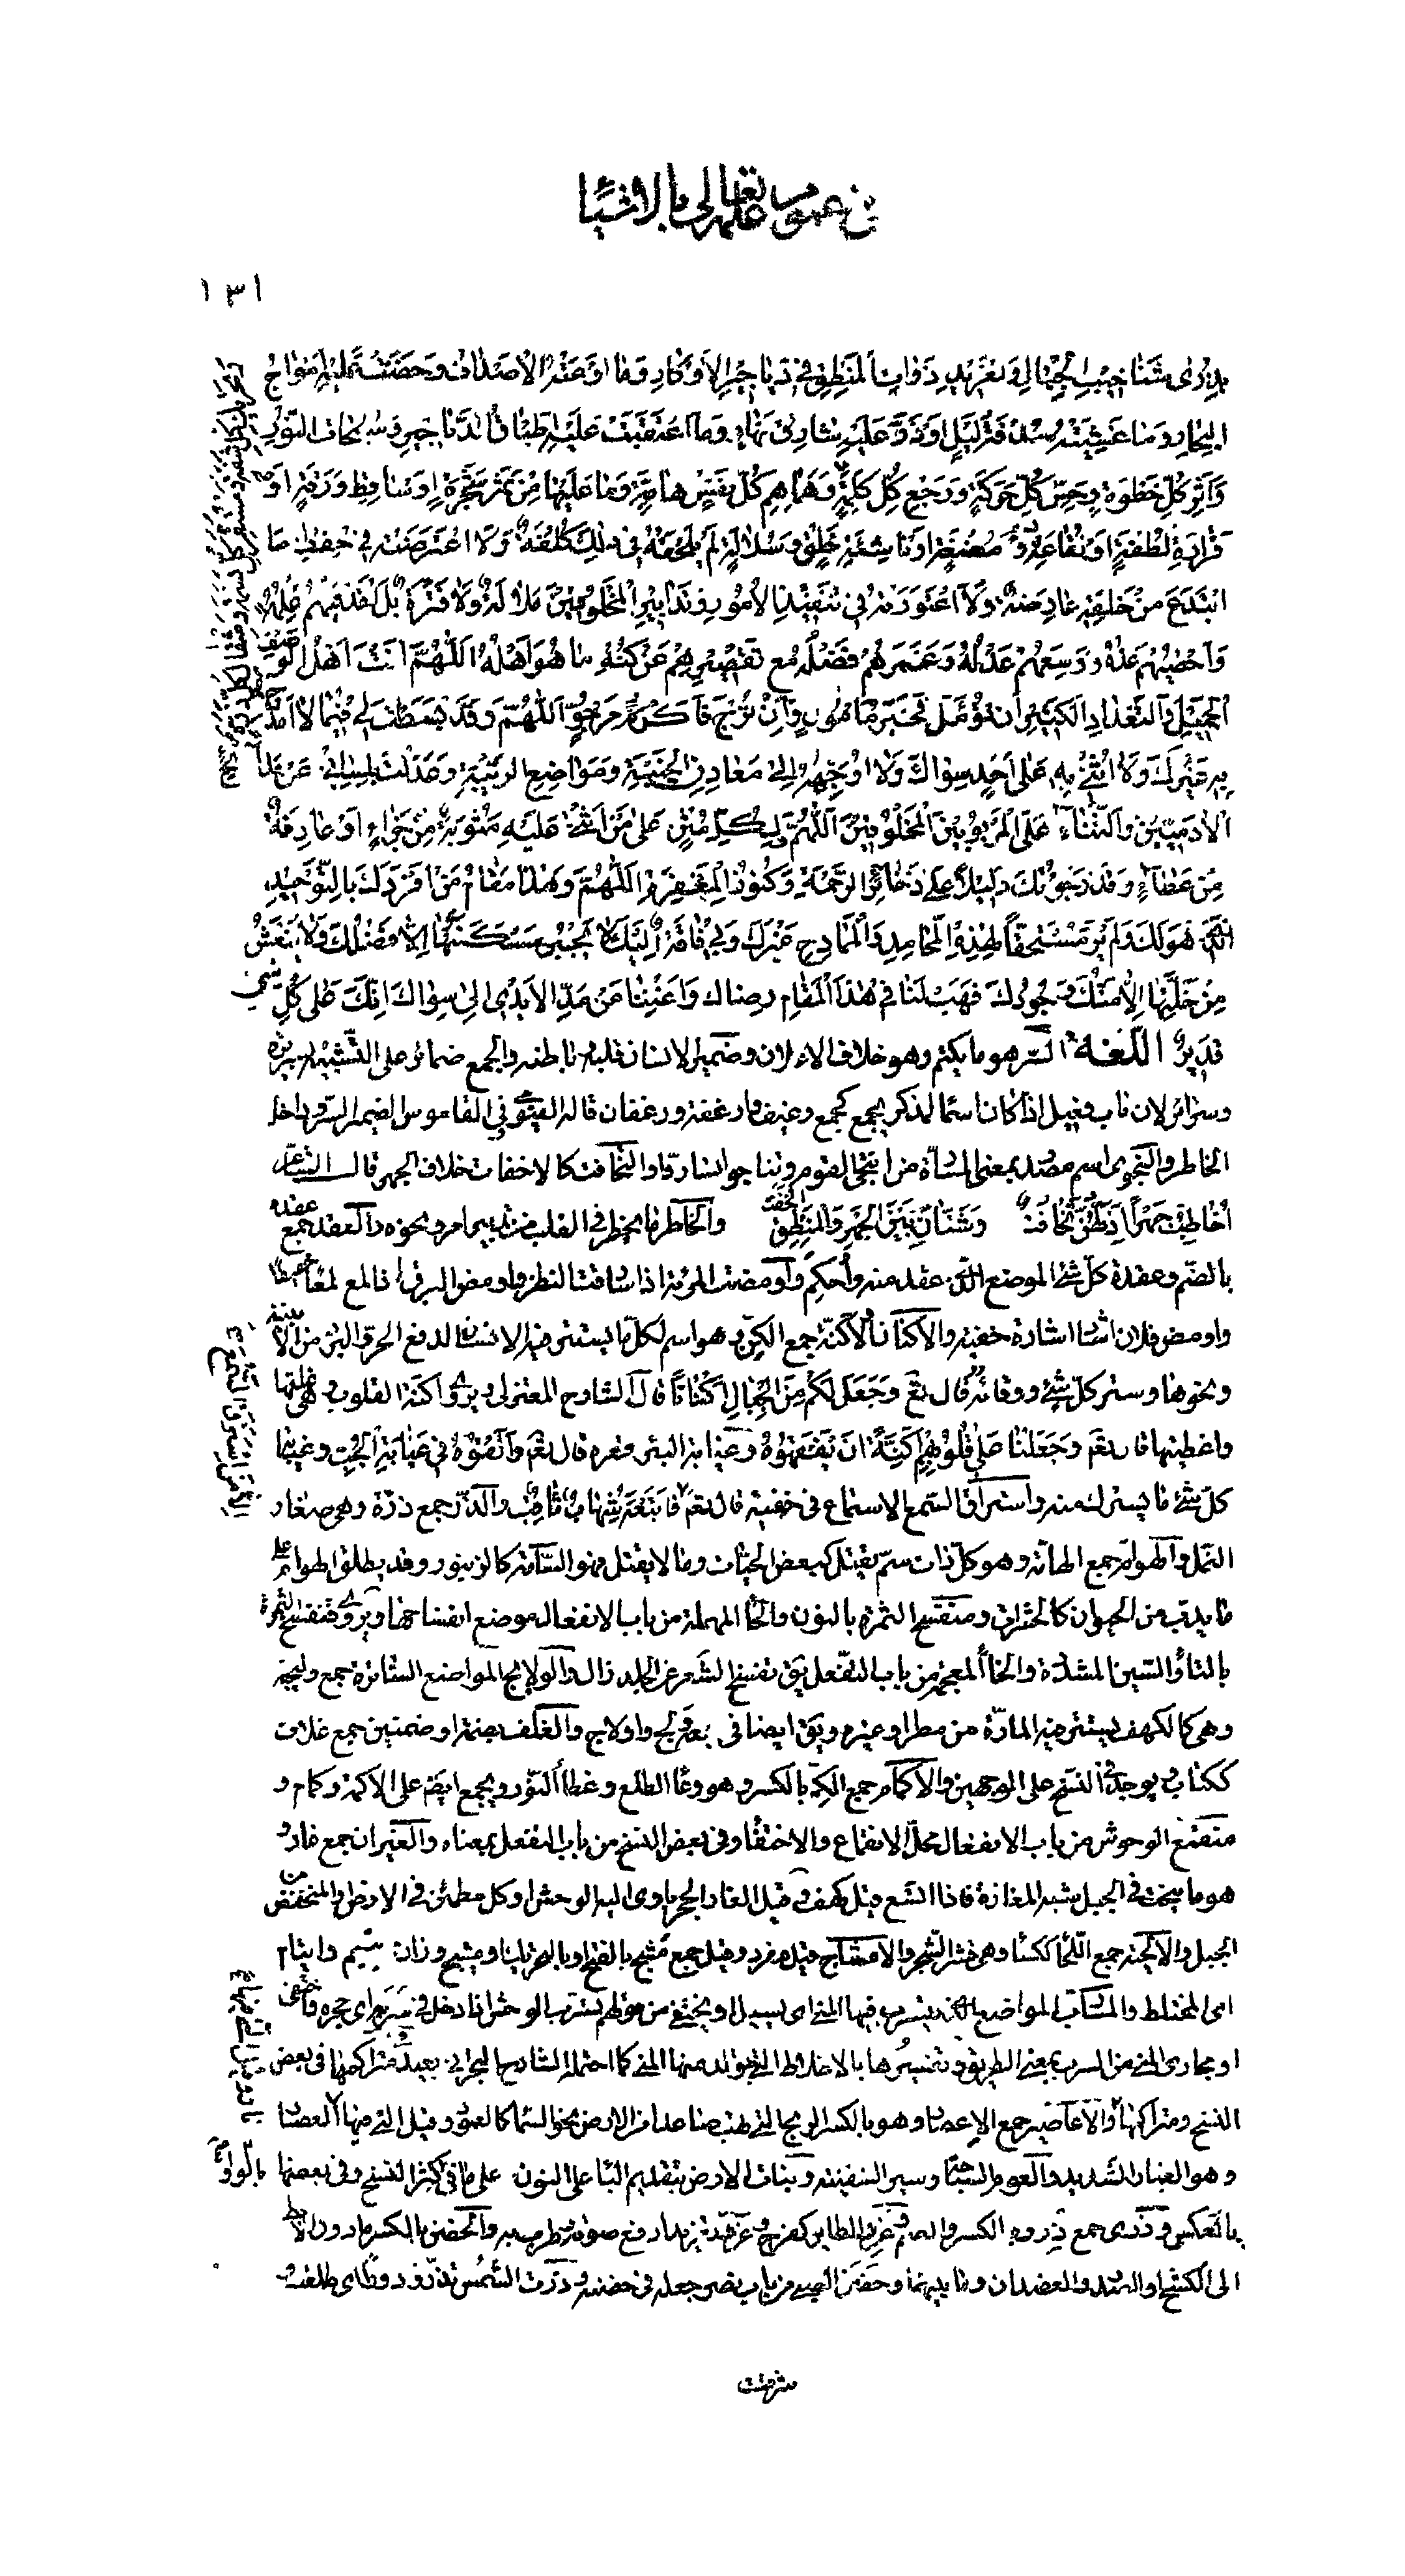 في عموم علمه تعالى بالاشياء
١٣١
بِذُرى شَناخيبِ الْجِبالِ وَتَغْريدِ ذَواتِ الْمَنْطِقِ في دَياجيرِ الْأَوْكارِ وَما أَوْعَتْهُ الْأَصْدافُ وَحَضَنَتْ عَلَيْهِ أَمْواجُ
الْبِحارِ وَما غَشِيَتْهُ سُدْفَةُ لَيْلٍ أَوْ ذَرَّ عَلَيْهِ شارِقُ نَهارٍ وَما اعْتَقَبَتْ عَلَيْهِ أَطْباقُ الدَّياجيرِ وَسُبُحاتُ النُّورِ
وَأَثَرِ كُلِّ خَطْوَةٍ وَحِسِّ كُلِّ حَرَكَةٍ وَرَجْعِ كُلِّ كَلِمَةٍ وَهَماهِمِ كُلِّ نَفْسٍ هامَّةٍ وَما عَلَيْها مِنْ ثَمَرِ شَجَرَةٍ أَوْ ساقِطِ وَرَقَةٍ أَوْ
قَرارَةِ نُطْفَةٍ أَوْ نُقاعَةِ دَمٍ وَمُضْغَةٍ أَوْ ناشِئَةِ خَلْقٍ وَسُلالَةٍ لَمْ يَلْحَقْهُ في ذلِكَ كُلْفَةٌ وَلَا اعْتَرَضَتْهُ في حِفْظِ مَا
ابْتَدَعَ مِنْ خَلْقِهِ عارِضَةٌ وَلَا اعْتَوَرَتْهُ في تَنْفيذِ الْأُمُورِ وَتَدابيرِ الْمَخْلُوقينَ مَلالَةٌ وَلا فَتْرَةٌ بَلْ نَفَذَ فيهِمْ عِلْمُهُ
وَأَحْصيهُمْ عَدُّهُ وَوَسِعَهُمْ عَدْلُهُ وَغَمَرَهُمْ فَضْلُهُ مَعَ تَقْصيرِهِمْ عَنْ كُنْهِ ما هُوَ أَهْلُهُ اَللّهُمَّ أَنْتَ أَهْلُ الْوَصْفِ
الْجَميلِ وَالتَّعْدادِ الْكَثيرِ أَنْ تُؤَمَّلْ فَخَيْرُ مَأْمُولٍ وَإِنْ تُرْجَ فَأَكْرَمُ مَرْجُوٍّ اَللّهُمَّ وَقَدْ بَسَطْتَ لي فيما لا أَمْدَحُ
بِهِ غَيْرَكَ وَلا أُثْني بِهِ عَلى أَحَدٍ سِواكَ وَلا أُوَجِّهُهُ إِلى مَعادِنِ الْخَيْبَةِ وَمَواضِعِ الرَّيْبَةِ وَعَدَلْتَ بِلِساني عَنْ مَدائِحِ
الْآدَمِيّينَ وَالثَّناءِ عَلَى الْمَرْبُوبينَ الْمَخْلُوقينَ اَللّهُمَّ وَلِكُلِّ مُثْنٍ عَلى مَنْ أَثْنى عَلَيْهِ مَثُوبَةٌ مِنْ جَزاءٍ أَوْ عارِفَةٌ
مِنْ عَطاءٍ وَقَدْ رَجَوْتُكَ دَليلاً عَلى ذَخائِرِ الرَّحْمَةِ وَكُنُوزِ الْمَغْفِرَةِ اَللّهُمَّ وَهذا مَقامُ مَنْ أَفْرَدَكَ بِالتَّوْحيدِ
الَّذي هُوَ لَكَ وَلَمْ يَرَ مُسْتَحِقّاً لِهذِهِ الْمَحامِدِ وَالْمَمادِحِ غَيْرَكَ وَبي فاقَةٌ إِلَيْكَ لا يَجْبُرُ مَسْكَنَتَها إِلّا فَضْلُكَ وَلا يَنْعَشُ
مِنْ خَلَّتِها إِلّا مَنُّكَ وَجُودُكَ فَهَبْ لَنا في هذَا الْمَقامِ رِضاكَ وَأَغْنِنا عَنْ مَدِّ الْأَيْدي إِلى سِواكَ إِنَّكَ عَلى كُلِّ شَيْءٍ
قَديرٌ اللّغة السّر هو ما يكتم وهو خلاف الاعلان وضمير الانسان قلبه وباطنه والجمع ضمائر على التّشبيه بسريرة
وسرائر لان باب فعيل اذا كان اسما لمذكر يجمع كجمع رغيف وارغفة ورغفان قاله الفيومي وفي القاموس الضمير السرّ وداخل
الخاطر والنجوى اسم مصدر بمعنى المسارّة من انتجى القوم وتناجوا تسارّوا والتخافت كالاخفات خلاف الجهر قال الشاعر
أُخاطِبُ جَهْراً إِذْ لَهُنَّ تَخافُتٌ وَشَتّانَ بَيْنَ الْجَهْرِ وَالْمَنْطِقِ الْخَفْتِ والخاطر ما يخطر في القلب من تدبير امر ونحوه والعقد جمع عقدة
بالضّم وعقدة كلّ شيء الموضع الذي عقد منه وأُحكِم وأومضت المرئة اذا سارقت النظر واومض البرق اذا لمع لمعا خفيفا
واومض فلان اشار اشارة خفية والاكنان والاكنّة جمع الكِنّ وهو اسم لكلّ ما يستتر فيه الانسان لدفع الحرّ والبرد من الابنية
ونحوها وستر كلّ شيء ووقائه قال تعالى وَجَعَلَ لَكُمْ مِنَ الْجِبالِ أَكْناناً قال الشارح المعتزلي ويروى اكنّة القلوب وهي غلفها
واغطيتها قال تعالى وَجَعَلْنا عَلى قُلُوبِهِمْ أَكِنَّةً أَنْ يَفْقَهُوهُ وغيابة البئر قعره قال تعالى وَأَلْقُوهُ في غَيابَتِ الْجُبِّ وغيابة
كلّ شيء ما يسترك منه واستراق السّمع الاستماع في خفية قال تعالى فَأَتْبَعَهُ شِهابٌ ثاقِبٌ والذّر جمع ذرّة وهي صغار
النمل والهوامّ جمع الهامّة وهو كلّ ذات سمّ يقتل كبعض الحيّات وما لا يقتل فهو السّامّة كالزنبور وقد يطلق الهوام على
ما يدبّ من الحيوان كالحشرات ومنفسح الثمرة بالنون والحاء المهملة من باب الانفعال موضع انفساحها ويروى متفسّخ الثمرة
بالتاء والسّين المشدّدة والخاء المعجمة من باب التفعّل يق تفسّخ الشعر عن الجلد زال والولايج المواضع السّاترة جمع وليجة
وهي كالكهف يستتر فيه المارّة من مطر او غيره ويق ايضا في جمعه ولج واولاج والغلف بضمة او ضمتين جمع غلاف
ككتاب ويوجد في النسخ على الوجهين والاكمام جمع الكِمّ بالكسر وهو وعاء الطلع وغطاء النّور ويجمع ايض على الاكمة وكمام و
منقمع الوحوش من باب الانفعال محلّ الانقماع والاختفاء وفي بعض النسخ من باب التفعل بمعناه والغيران جمع غار و
هو ما ينحت في الجبل شبه المغارة فاذا اتّسع قيل كهف وقيل الغار الجحر يأوى اليه الوحش او كل مطمئن في الارض او المنخفض من
الجبل والالحية جمع اللّحاء ككساء وهي قشر الشّجر والامشاج قيل مفرد وقيل جمع مَشج بالفتح او بالتحريك او مشيج وزان يتيم وايتام
اى المختلط والمسارب المواضع التي يتسرب فيها المنى اى يسيل او يختفي من قولهم تسرّب الوحش اذا دخل في سربه اى جحره واختفى
او مجاري المنى من السرب بمعنى الطريق وتفسيرها بالاخلاط التي يتولد منها المنى كما احتمله الشارح البحراني بعيد ومتراكمها في بعض
النسخ ومتراكمها والاعاصير جمع الاعصار وهو بالكسر الريح التي تهب صاعدا من الارض نحو السّماء كالعمود وقيل التي فيها العصار
وهو الغبار الشديد والعوم السّباحة وسير السفينة وبنات الارض بتقديم الباء على النون على ما في اكثر النسخ وفي بعضها
بالعكس وذُرى جمع ذروة بالكسر والضم وغرّد الطاير كفرح وغرّد تغريدا رفع صوته وطرب به والحضن بالكسر ما دون الابط
الى الكشح او الصّدر والعضدان وما بينهما وحضن الصبي من باب نصر جعله في حضنه وذرّت الشّمس تذرّ ذرورا اى طلعت و
شرقت